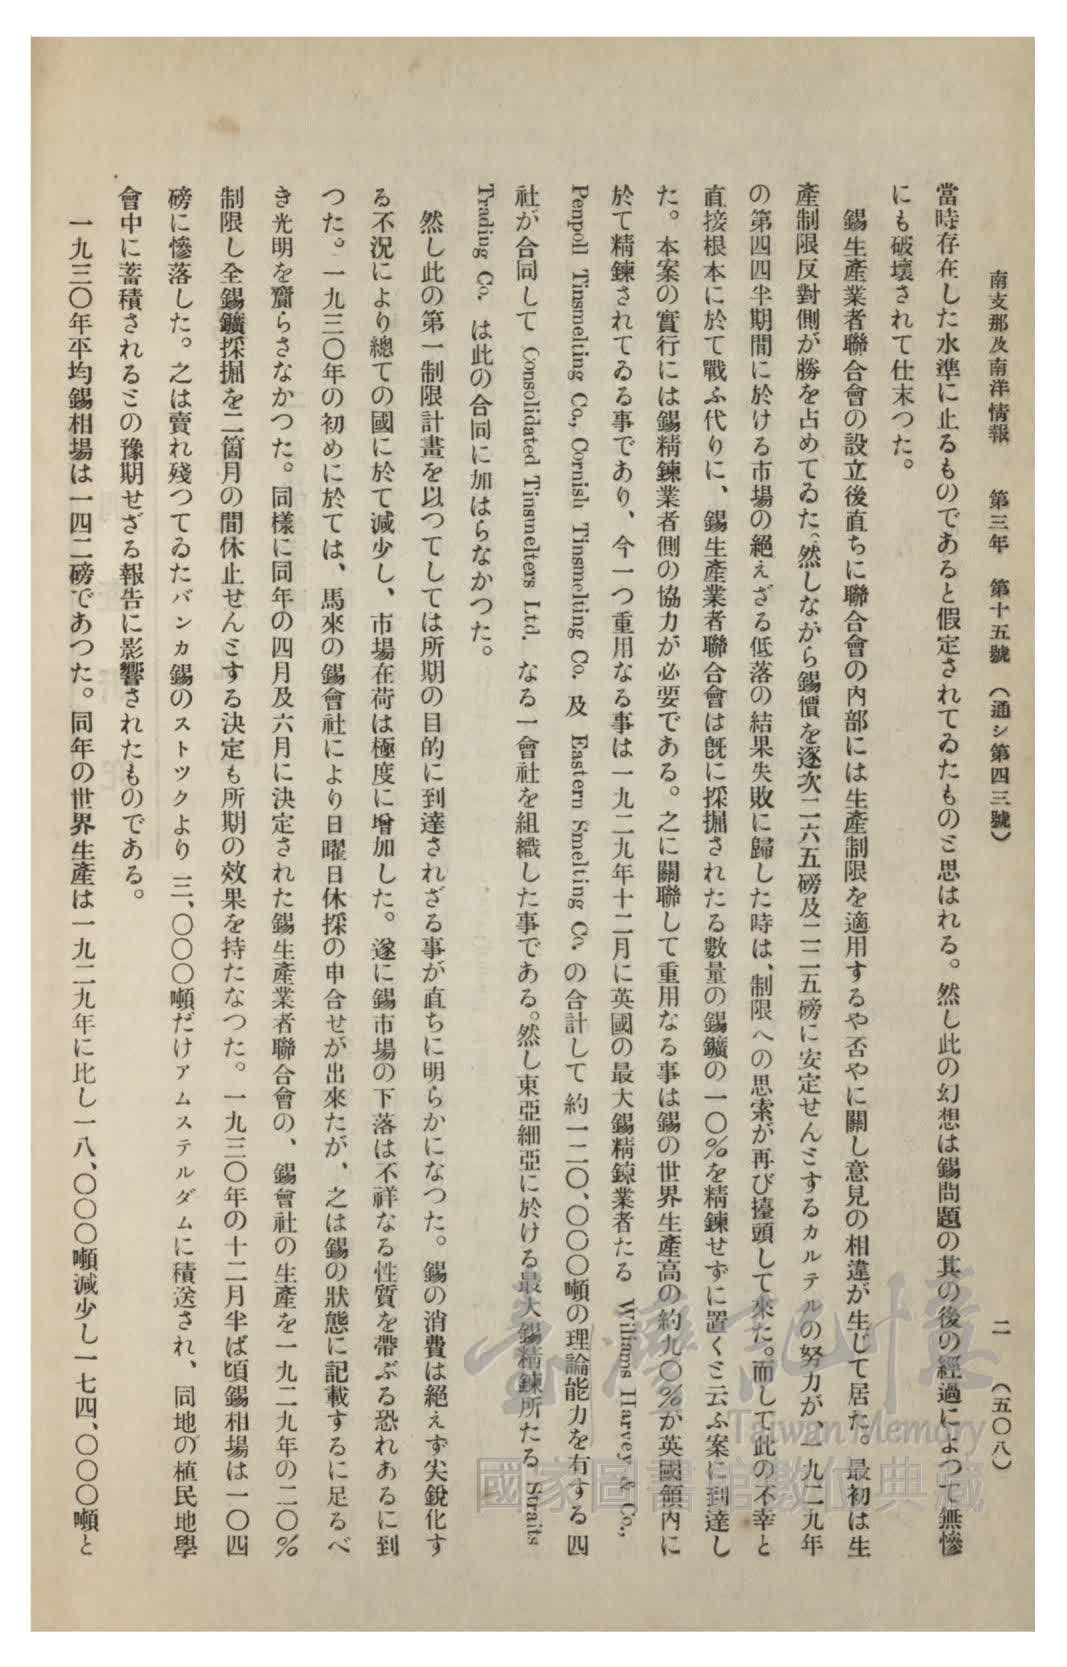 南支那及南洋情報　第三年　第十五號　（通シ第四三號）　二　（五〇八）
當時存在した水準に止るものであると假定されてゐたものミ思はれる。然し此の幻想は錫問題の其の後の經過によつて無慘
にも破壞されて仕末つた。
錫生產業者聯合會の設立後直ちに聯合會の內部には生產制限を適用するや否やに關し意見の相違が生じて居た。最初は生
產制限反對側が勝を占めてゐた。然しながら錫價を逐次二六五磅及二二五磅に安定せんミするカルテルの努力が、一九二九年
の第四四半期間に於ける市場の絕えざる低落の結果失敗に歸した時は、制限への思索が再び擡頭して來た。而して此の不幸と
直接根本に於て戰ふ代りに、錫生產業者聯合會は旣に採掘されたる數量の錫鑛の一〇%を精鍊せずに置くミ云ふ案に到達し
た。本案の實行には錫精鍊業者側の協力が必要である。之に關聯して重用なる事は錫の世界生產高の約九〇%が英國領內に
於て精鍊されてゐる事であり、今一つ重用なる事は一九二九年十二月に英國の最大錫精鍊業者たる Williams Harvey & Co.,
Penpoll Tinsmelting Co., Cornish Tinsmelting Co. 及 Eastern Smelting Co. の合計して約一二〇、〇〇〇噸の理論能力を有する四
社が合同して Consolidated Tinsmelters Ltd. なる一會社を組織した事である。然し東亞細亞に於ける最大錫精鍊所たる Straits
Trading Co. は此の合同に加はらなかつた。
然し此の第一制限計畫を以つてしては所期の目的に到達されざる事が直ちに明らかになつた。錫の消費は絕えず尖銳化す
る不況により總ての國に於て減少し、市場在荷は極度に增加した。遂に錫市場の下落は不祥なる性質を帶ぶる恐れあるに到
つた。一九三〇年の初めに於ては、馬來の錫會社により日曜日休採の申合せが出來たが、之は錫の狀態に記載するに足るべ
き光明を齎らさなかつた。同樣に同年の四月及六月に決定された錫生產業者聯合會の、錫會社の生產を一九二九年の二〇%
制限し全錫鑛採掘を二箇月の間休止せんミする決定も所期の效果を持たなつた。一九三〇年の十二月半ば頃錫相場は一〇四
磅に慘落した。之は賣れ殘つてゐたバンカ錫のストツクより三、〇〇〇噸だけアムステルダムに積送され、同地の植民地學
會中に蓄積されるミの豫期せざる報告に影響されたものである。
一九三〇年平均錫相場は一四二磅であつた。同年の世界生產は一九二九年に比し一八、〇〇〇噸減少し一七四、〇〇〇噸と
臺灣記憶
Taiwan Memory
國家圖書館數位典藏